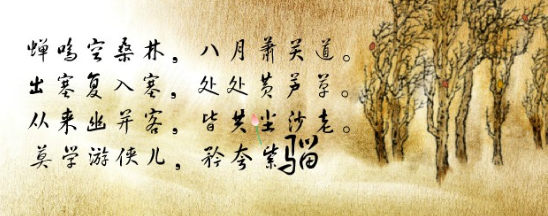 蝉鸣空桑林，八月萧关道。
出塞复入塞，处处黄芦草。
从来幽并客，皆共尘沙老。
莫学游侠儿，矜夸紫骝